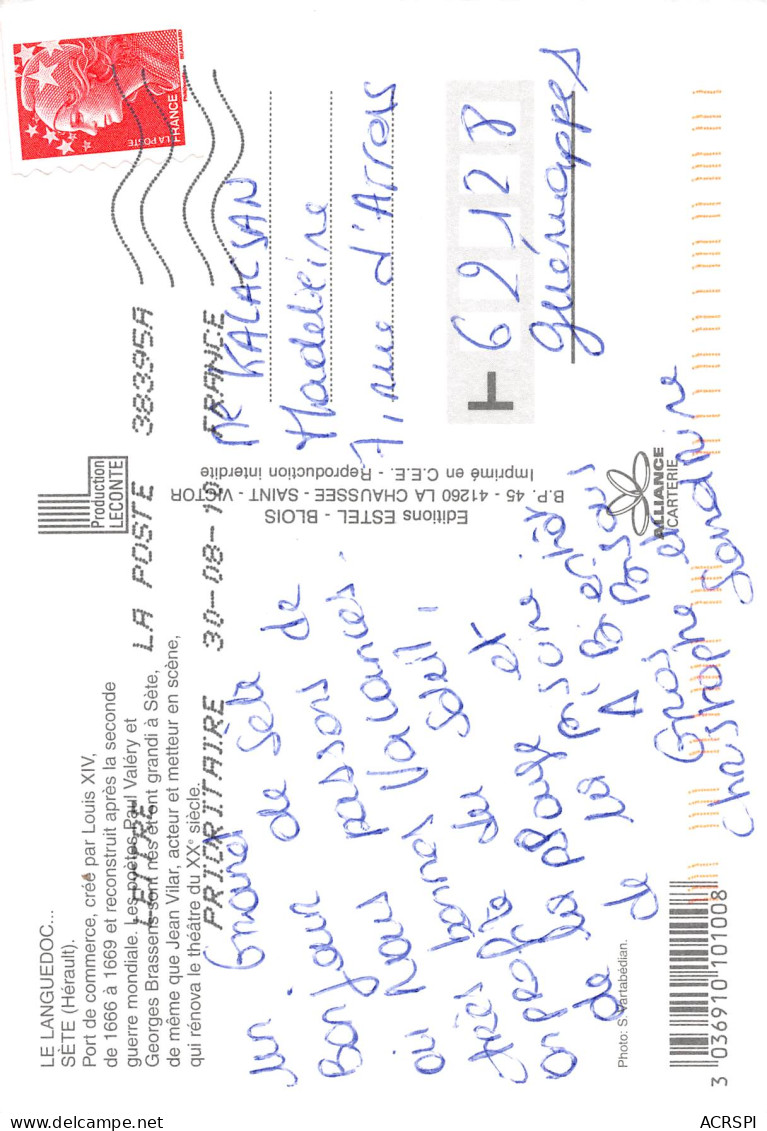 LE LANGUEDOC...
SÈTE (Hérault).
Port de commerce, créé par Louis XIV,
de 1666 à 1669 et reconstruit après la seconde
guerre mondiale. Les poètes Paul Valéry et
Georges Brassens sont nés et ont grandi à Sète,
de même que Jean Vilar, acteur et metteur en scène,
qui rénova le théâtre du XXe siècle.
LETTRE
PRIORITAIRE
LA POSTE 38395A
30-08-10 FRANCE
Production
LECONTE
LA POSTE
FRANCE
un Grand
Bonjour de Sète
où Nous passons de
très bonnes Vacances.
on profite du soleil,
de la plage et
de la piscine.
A Bientôt
Gros Bisous
Christophe et Sandrine
Me KALACSAN
Madeleine
7, rue d'Arras
62128
guémappes
Editions ESTEL - BLOIS
B.P. 45 - 41260 LA CHAUSSEE - SAINT - VICTOR
Imprimé en C.E.E. - Reproduction interdite
ALLIANCE
CARTERIE
Photo: S. Vartabédian.
3 036910 101008
ACRSPI